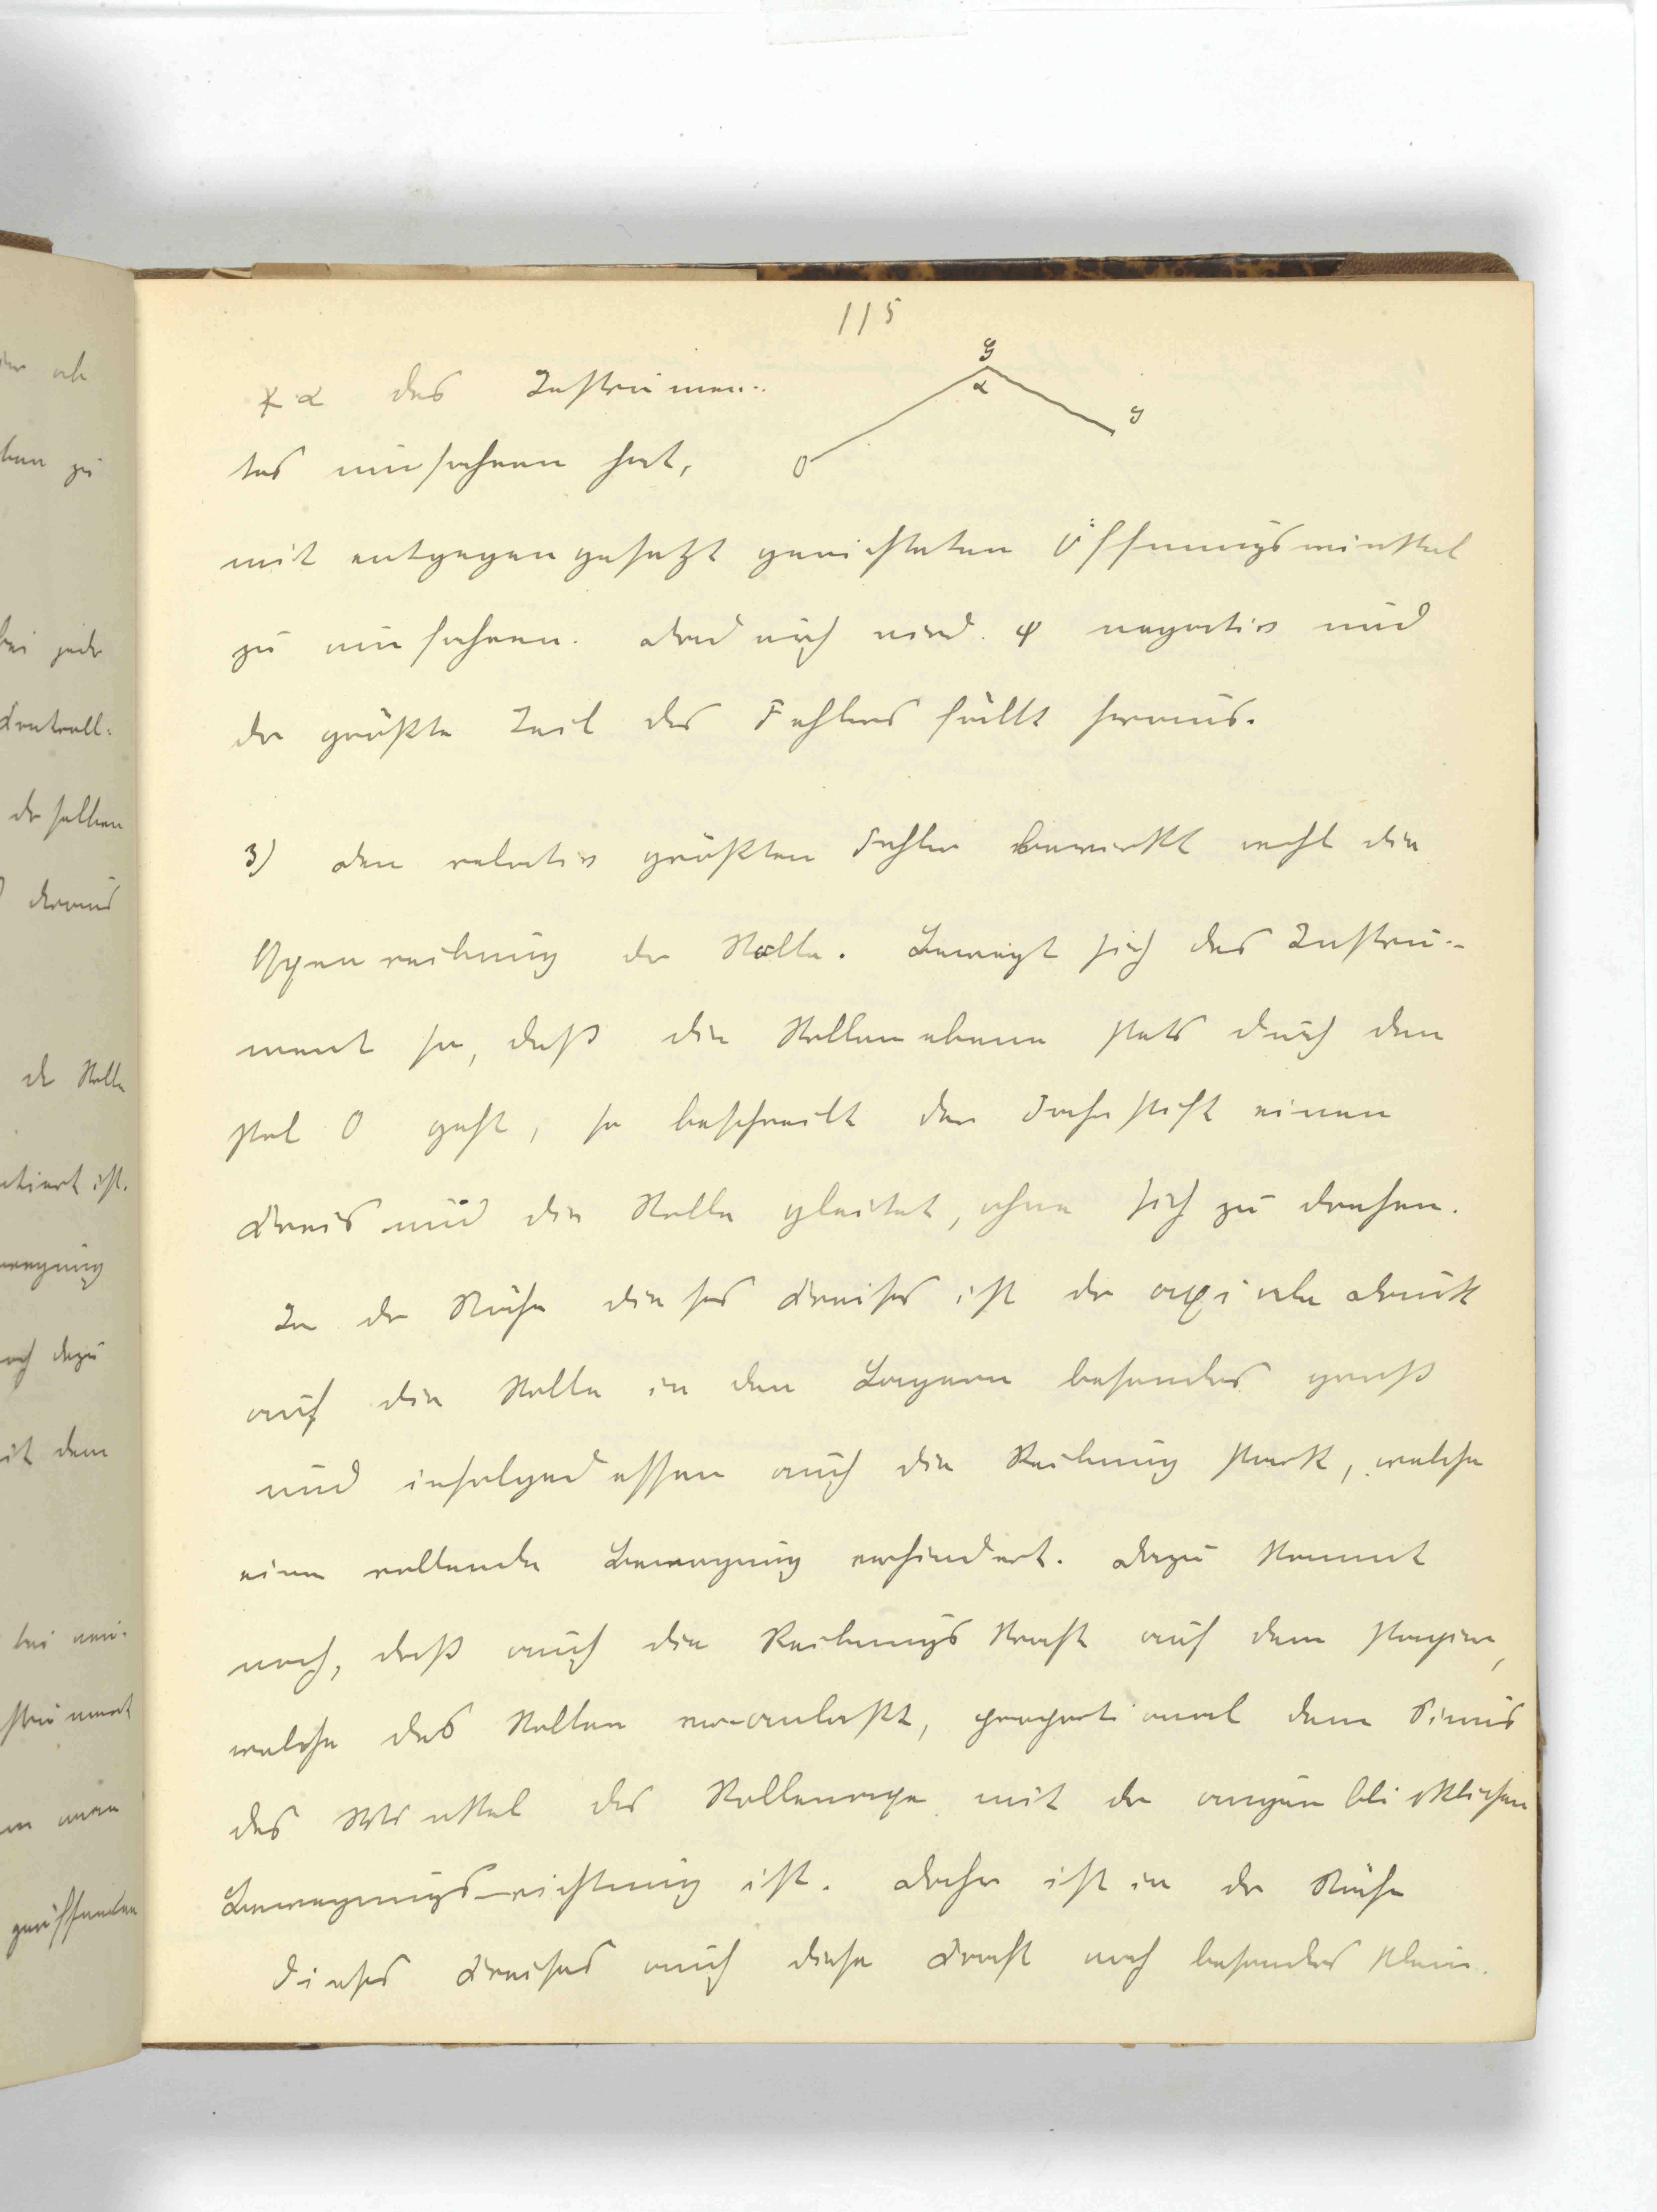 115
∢ α des Instrumen-
tes umfahren hat,
G
α
J
O
mit entgegengesetzt gerichteten Öffnungswinkel
zu umfahren. Dadurch wird φ negativ und
der größte Teil des Fehlers fällt heraus.
3) Den relativ größten Fehler bewirkt wohl die
Axenreibung der Rolle. Bewegt sich das Instru-
ment so, daß die Rollenebene stets durch den
Pol O geht, so beschreibt der Fahrstift einen
Kreis und die Rolle gleitet, ohne sich zu drehen.
In der Nähe dieses Kreises ist der axiale Druck
auf die Rolle in den Lagern besonders groß
und infolgedessen auch die Reibung stark, welche
eine rollende Bewegung verhindert. Dazu kommt
noch, daß auch die Reibungskraft auf dem Papier,
welche das Rollen veranlaßt, proportional dem Sinus
des Winkel der Rollenaxe mit der augenblicklichen
Bewegungsrichtung ist. Daher ist in der Nähe
dieses Kreises auch diese Kraft noch besonders klein.
bei jeder
Kontroll-
derselben
daraus
der Rolle
ist.
noch dazu
dem
bei